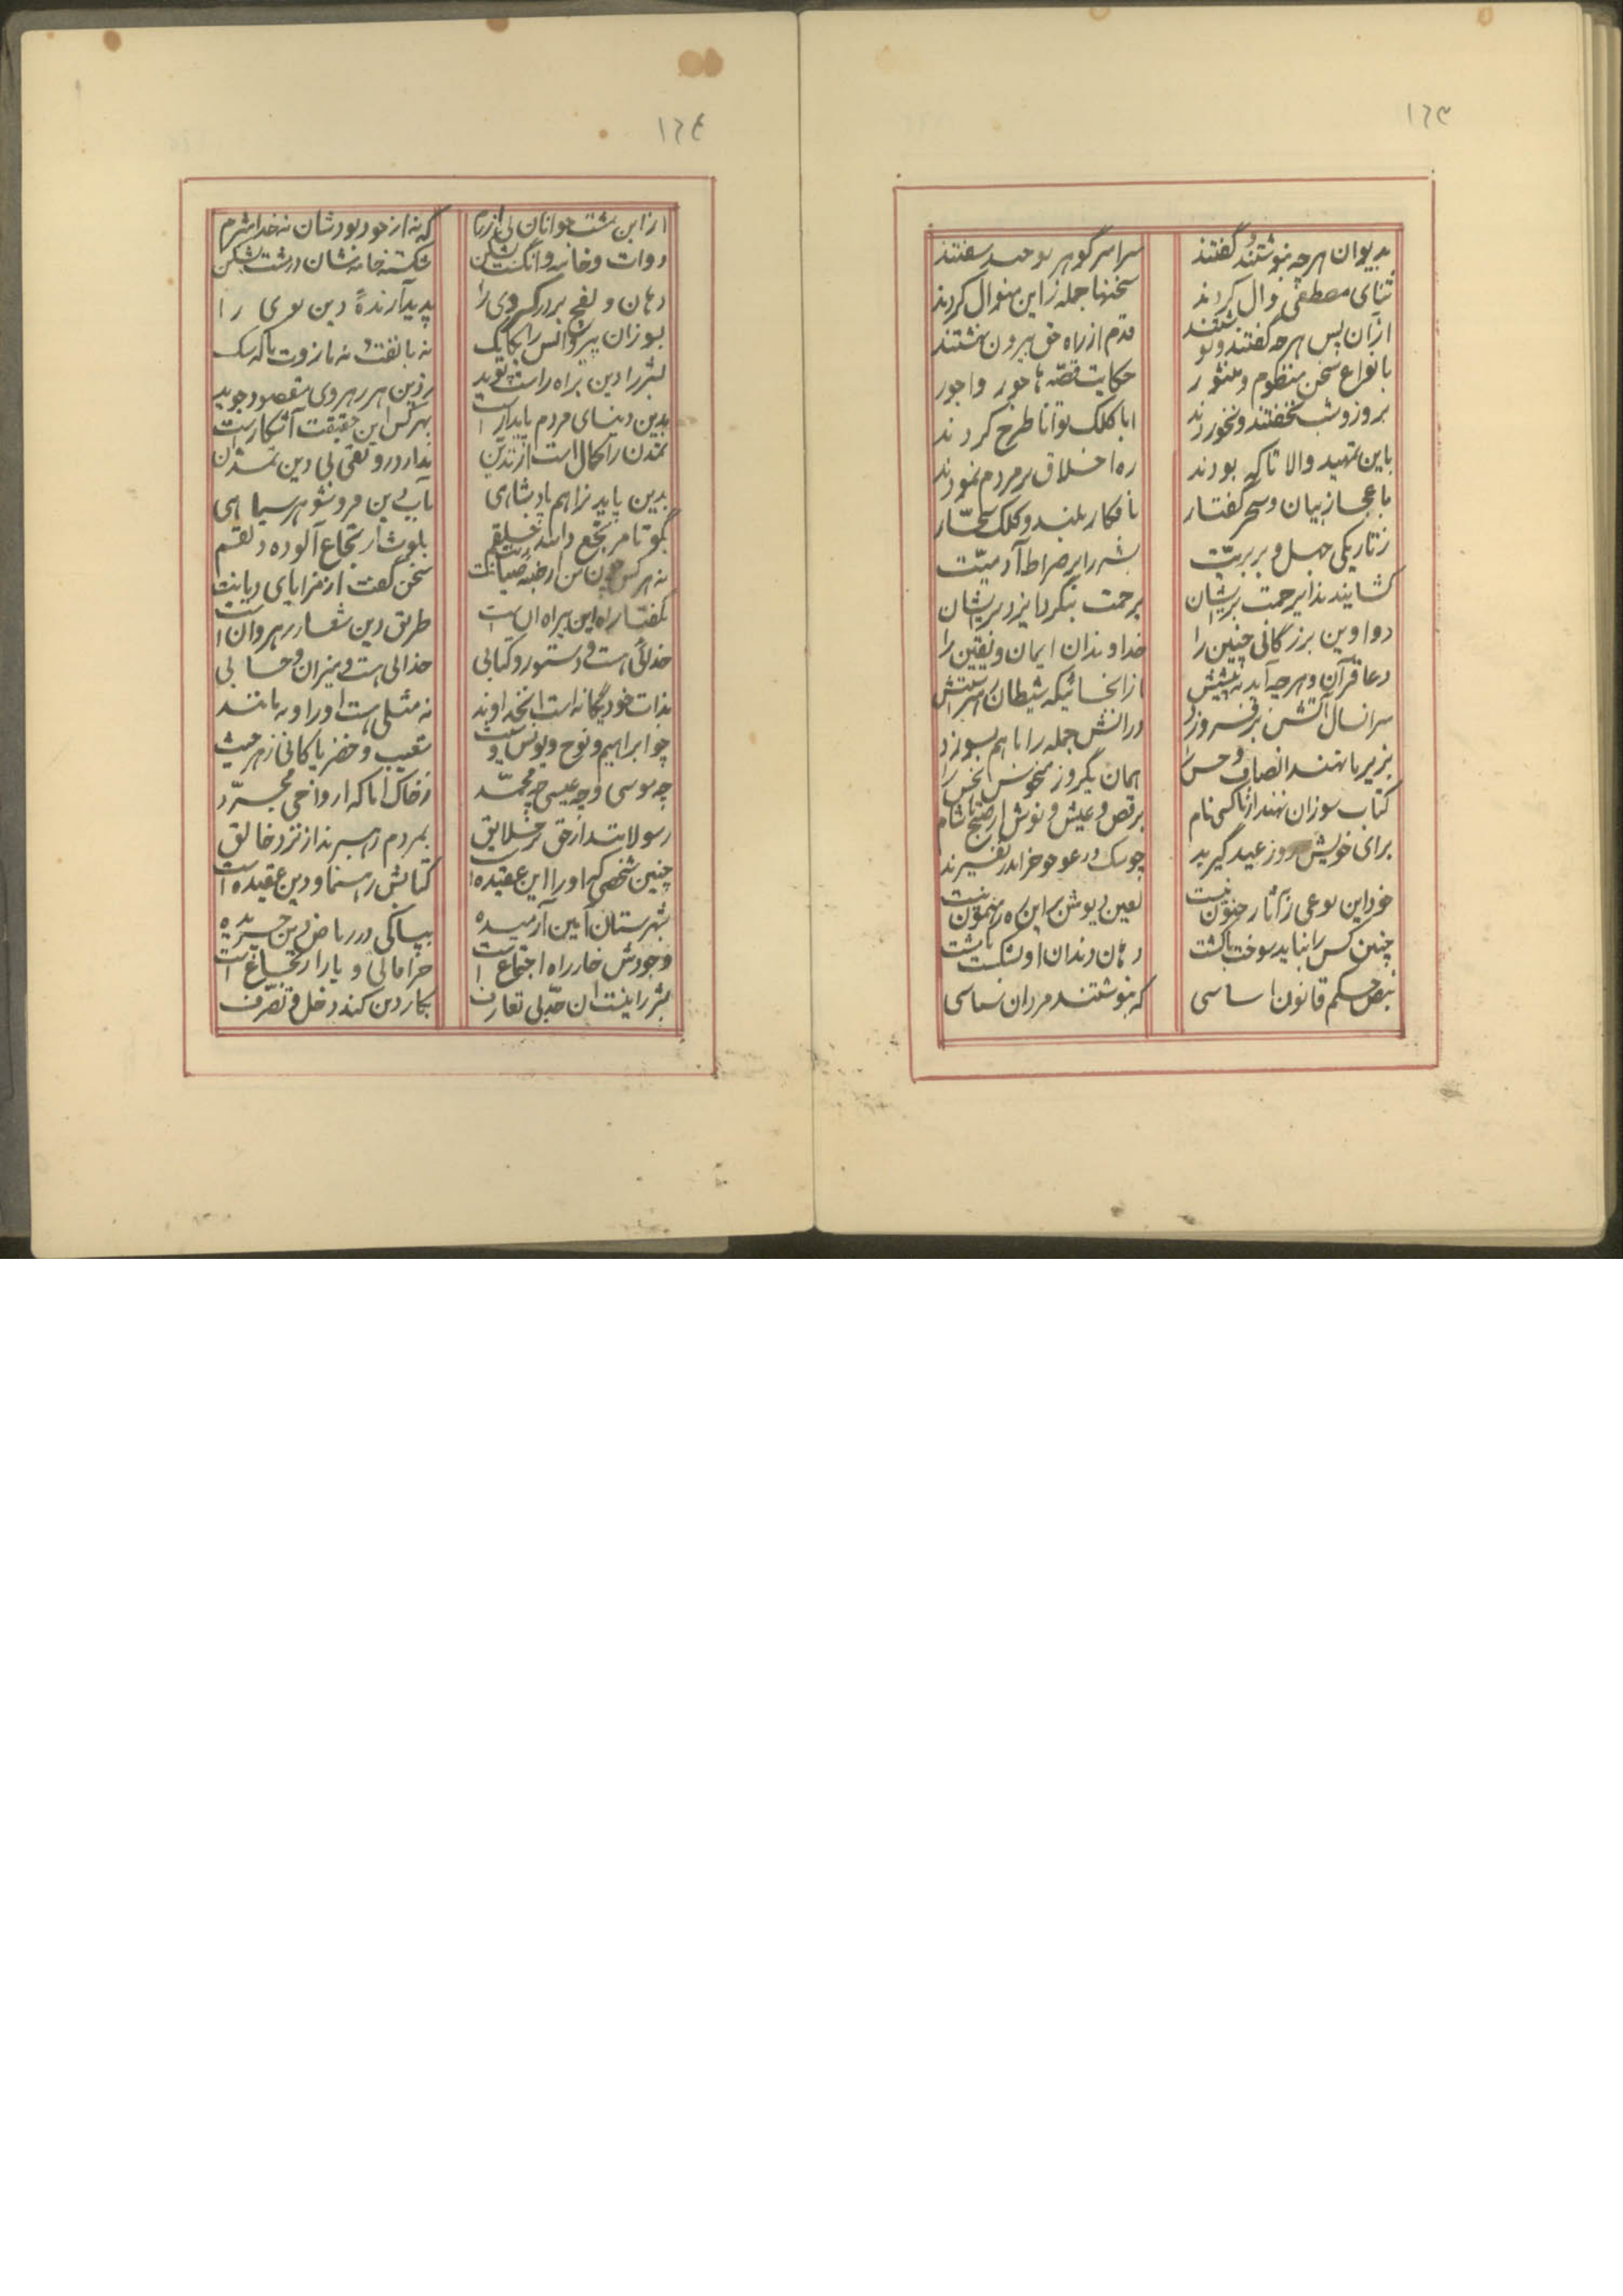 ١٦٣
بدیوان هرچه بنوشتند و گفتند سراسر گوهر توحید سفتند
ثنای مصطفی و آل کردند سخنها جمله زاین منوال کردند
ازآن پس هرچه گفتند و نوشتند قدم از راه حق بیرون نهشتند
بانواع سخن منظوم و منثور حکایت قصّه‌ها جور واجور
بروز و شب نخفتند و نخوردند ابا کلک توانا طرح کردند
باین تمهید والا تا که بودند ره اخلاق بر مردم نمودند
باعجاز بیان و سحر گفتار بافکار بلند و کلک سحّار
زتاریکی جهل و بربریّت بشر را بر صراط آدمیّت
کشانیدند ایزد رحمت بریشان برحمت بنگرد ایزد بریشان
دواوین بزرگانی چنین را خداوندان ایمان و یقین را
دعا قرآن و هرچه آید به پیشش ازآنجائیکه شیطان است
سر انسال آتش برفروزد درآتش جمله را با هم بسوزد
بزیر پا نهند انصاف و حس را همان یکروز نحس را
کتاب سوزان نهند آنرا کسی نام برقص و عیش و نوش از صبح تا شام
برای خویش روز عید گیرند چو سگ در عوعو خر اندر نفیرند
خود این نوعی زآثار جنون نیست لعین دیوش براین ره رهنمون نیست
چنین کس را نباید سوخت یا کشت دهان و دندان او بشکست با مشت
بنص حکم قانون اساسی که بنوشتند مردان سیاسی
١٦٤
از این مشت جوانان بی آزرم که نه از خود بودشان نه خدا شرم
دوات و خامه و انگشت بشکن شکسته خامه‌شان در مشت بشکن
دهان و لفج بردر کسروی را پدیدآرندهٔ دین نوی را
بسوزان پیروانش را یکایک نه با نفت و نه با زوت با که سگ
بشر را دین براه راست پوید زدین هر رهروی مقصود جوید
بدین دنیای مردم پایدار است بهرکس این حقیقت آشکار است
تمدن را کمال است از تدیّن ندارد رونقی بی دین تمدّن
بدین پاید نزاهم پادشاهی بآب دین فروشو هر سیاهی
بگو تا مرتجع دانند خلقم بلوث ارتجاع آلوده دلقم
نه هرکس چون من از صیانت سخن گفت از مزایای دیانت
بگفتار راه این بیراه آن است طریق دین شعار رهروان است
خدائی هست و دستور و کتابی خدائی هست و میزان و حسابی
بذات خود یگانه است آنخداوند نه مثلی هست او را و نه مانند
چو ابراهیم و نوح و یونس و شیث شعیب و خضر پاکانی زهر حیث
چه موسی و چه عیسی چه محمّد زخاک امّا که ارواحی مجرّد
رسولانند از حق بر خلایق بمردم رهبرند از نزد خالق
چنین شخصی که او را این عقیده است کتابش رهنما و دین عقیده است
بشهرستان آیین آرمیده بپاکی در ریاض دین چریده
وجودش خار راه اجتماع است خرافاتی و یا را ارتجاع است
بشر را نیست آن حدّ بی تعارف بکار دین کند دخل و تصرّف